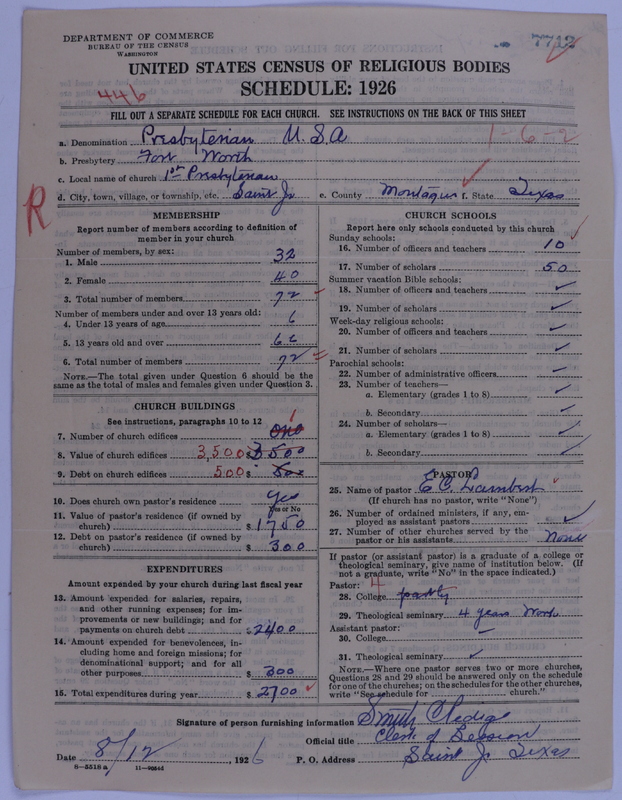 DEPARTMENT OF COMMERCE
BUREAU OF THE CENSUS
WASHINGTON
7712
UNITED STATES CENSUS OF RELIGIOUS BODIES
446
SCHEDULE: 1926
FILL OUT A SEPARATE SCHEDULE FOR EACH CHURCH. SEE INSTRUCTIONS ON THE BACK OF THIS SHEET
a. Denomination Presbyterian U.S.A 1-6-2
b. Presbytery Fort Worth
c. Local name of church 1st Presbyterian
d. City, town, village, or township, etc. Saint Jo e. County Montague f. State Texas
R
MEMBERSHIP
Report number of members according to definition of
member in your church
Number of members, by sex:
1. Male 32
2. Female 40
3. Total number of members 72
Number of members under and over 13 years old:
4. Under 13 years of age 6
5. 13 years old and over 66
6. Total number of members 72
NOTE.—The total given under Question 6 should be the
same as the total of males and females given under Question 3.
CHURCH BUILDINGS
See instructions, paragraphs 10 to 12
7. Number of church edifices one 1
8. Value of church edifices 3,500 $ 3500
9. Debt on church edifices 500 $ 500
10. Does church own pastor's residence yes
Yes or No
11. Value of pastor's residence (if owned by
church) $ 1750
12. Debt on pastor's residence (if owned by
church) $ 300
EXPENDITURES
Amount expended by your church during last fiscal year
13. Amount expended for salaries, repairs,
and other running expenses; for im-
provements or new buildings; and for
payments on church debt $ 2400
14. Amount expended for benevolences, in-
cluding home and foreign missions; for
denominational support; and for all
other purposes $ 300
15. Total expenditures during year $ 2700
CHURCH SCHOOLS
Report here only schools conducted by this church
Sunday schools:
16. Number of officers and teachers 10
17. Number of scholars 50
Summer vacation Bible schools:
18. Number of officers and teachers
19. Number of scholars
Week-day religious schools:
20. Number of officers and teachers
21. Number of scholars
Parochial schools:
22. Number of administrative officers
23. Number of teachers—
a. Elementary (grades 1 to 8)
b. Secondary
24. Number of scholars—
a. Elementary (grades 1 to 8)
b. Secondary
PASTOR
25. Name of pastor E C Lambert
(If church has no pastor, write "None")
26. Number of ordained ministers, if any, em-
ployed as assistant pastors
27. Number of other churches served by the
pastor or his assistants None
If pastor (or assistant pastor) is a graduate of a college or
theological seminary, give name of institution below. (If
not a graduate, write "No" in the space indicated.)
Pastor:
28. College partly
29. Theological seminary 4 years Work
Assistant pastor:
30. College
31. Theological seminary
NOTE.—Where one pastor serves two or more churches,
Questions 28 and 29 should be answered only on the schedule
for one of the churches; on the schedules for the other churches,
write "See schedule for church."
Signature of person furnishing information Smith
Official title Clerk of Session
Date 8/12, 1926 P. O. Address Saint Jo Texas
8-5518 a